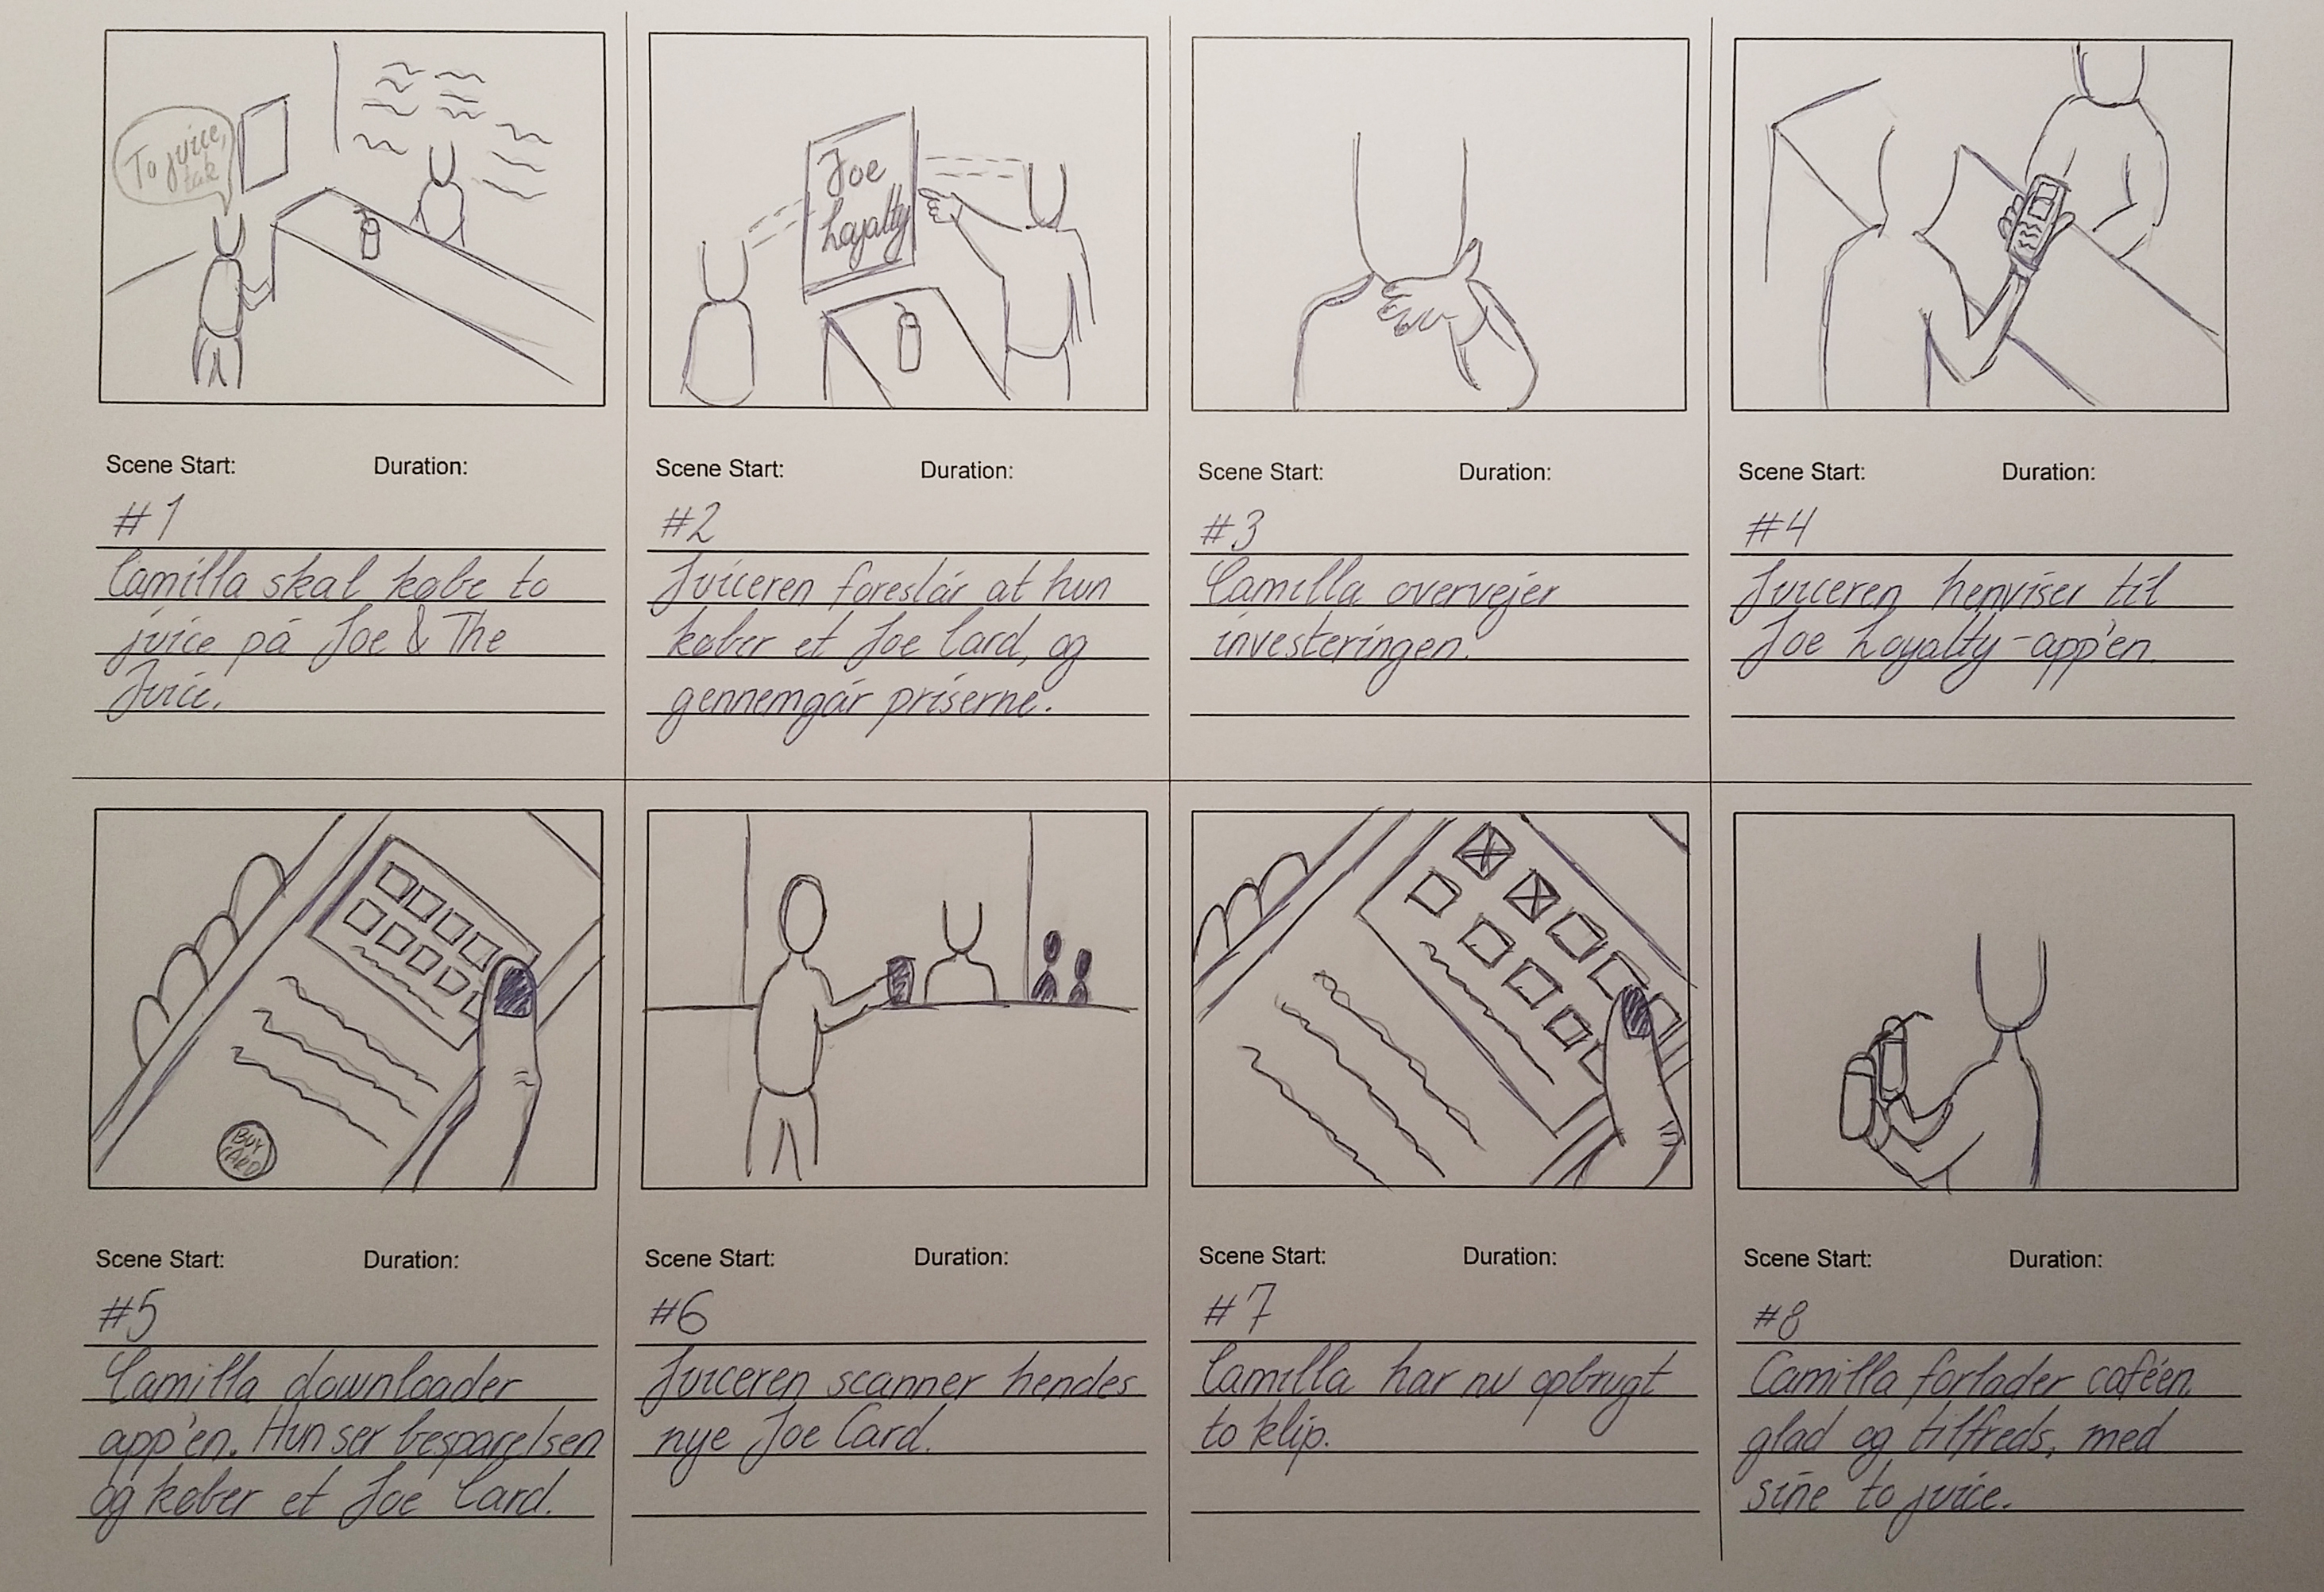 To juice,
tak
Joe
Loyalty
Scene Start: Duration:
#1
Camilla skal købe to
juice på Joe & The
Juice.
Scene Start: Duration:
#2
Juiceren foreslår at hun
køber et Joe Card, og
gennemgår priserne.
Scene Start: Duration:
#3
Camilla overvejer
investeringen.
Scene Start: Duration:
#4
Juiceren henviser til
Joe Loyalty-app'en.
BUY
CARD
Scene Start: Duration:
#5
Camilla downloader
app'en. Hun ser besparelsen
og køber et Joe Card.
Scene Start: Duration:
#6
Juiceren scanner hendes
nye Joe Card.
Scene Start: Duration:
#7
Camilla har nu opbrugt
to klip.
Scene Start: Duration:
#8
Camilla forlader caféen,
glad og tilfreds, med
sine to juice.